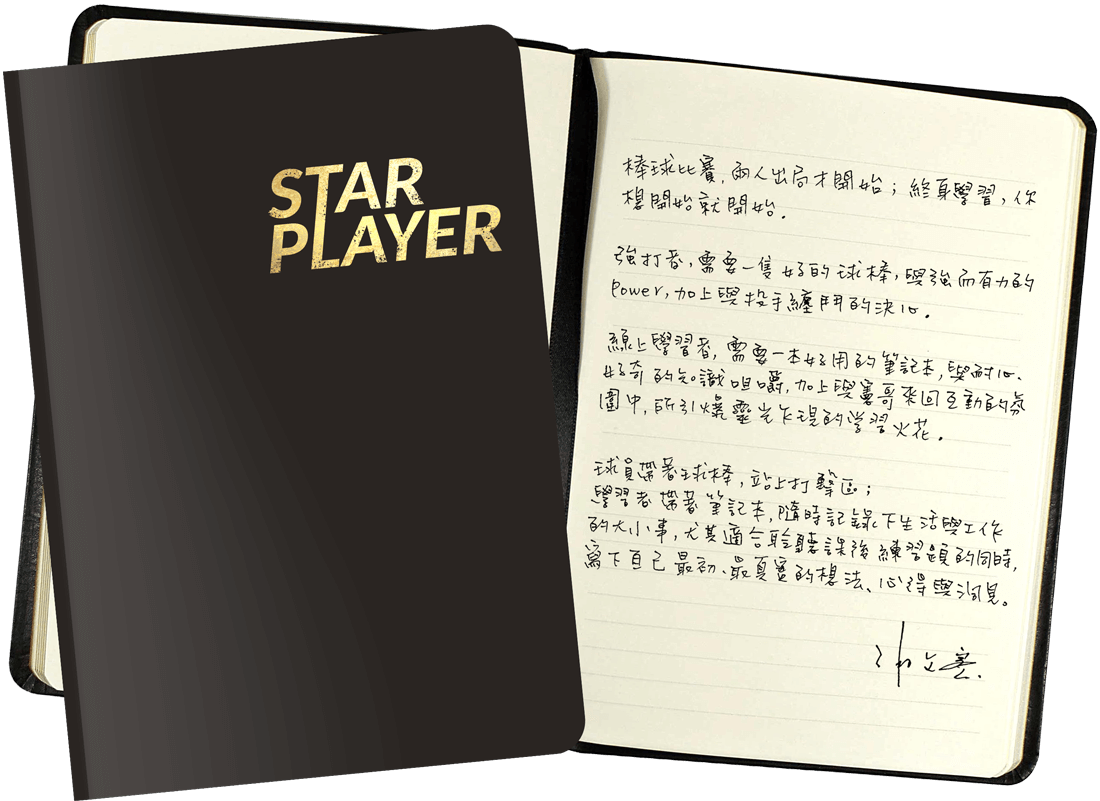 STAR
PLAYER
棒球比賽，兩人出局才開始；終身學習，你
想開始就開始。
強打者，需要一隻好的球棒，與強而有力的
Power，加上與投手纏鬥的決心。
線上學習者，需要一本好用的筆記本，與耐心、
好奇的知識咀嚼，加上與憲哥來回互動的氛
圍中，所引爆靈光乍現的学習火花。
球員帶著球棒，站上打擊區；
學習者帶著筆記本，隨時記錄下生活與工作
的大小事，尤其適合聆聽課後練習題的同時，
寫下自己最初、最真實的想法、心得與洞見。
文憲